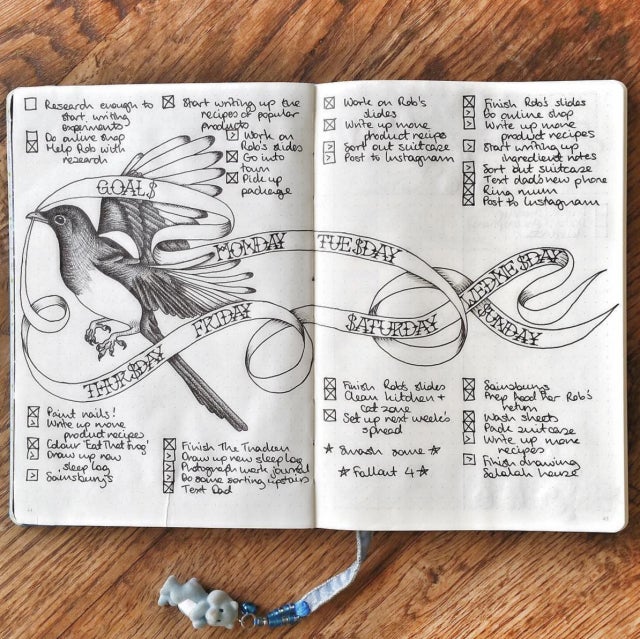 GOALS
Research enough to
start writing
experiments
Do online shop
Help Rob with
research
MONDAY
Start writing up the
recipes of popular
products
> Work on
Rob's slides
Go into
town
Pick up
package
TUESDAY
Work on Rob's
slides
Write up more
product recipes
> Sort out suitcase
> Post to Instagram
WEDNESDAY
Finish Rob's slides
> Do online shop
> Write up more
product recipes
> Start writing up
ingredient notes
Sort out suitcase
Text dad's new phone
Ring mum
Post to Instagram
THURSDAY
Paint nails!
> Write up more
product recipes
Colour 'Eat That Frog'
> Draw up new
sleep log
> Sainsbury's
FRIDAY
Finish The
> Draw up new sleep log
> Photograph work journal
> Do some sorting upstairs
Text Dad
SATURDAY
Finish Rob's slides
Clean kitchen +
cat zone
Set up next week's
spread
☆ Smash some ☆
☆ Fallout 4 ☆
SUNDAY
Sainsburys
Prep food for Rob's
return
Wash sheets
Pack suitcase
> Write up more
recipes
> Finish drawing
house